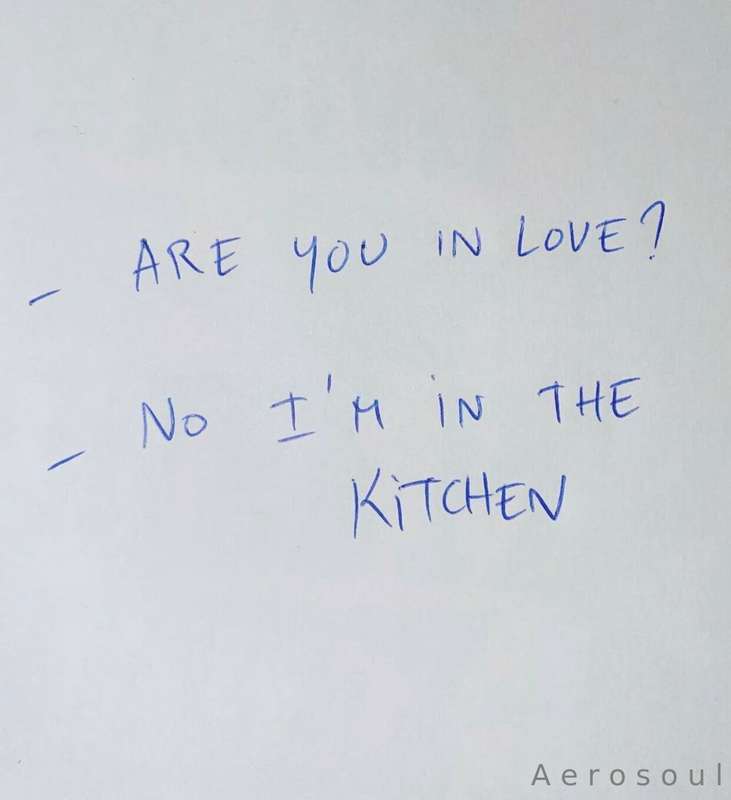 - ARE YOU IN LOVE?
- NO I'M IN THE
KITCHEN
Aerosoul